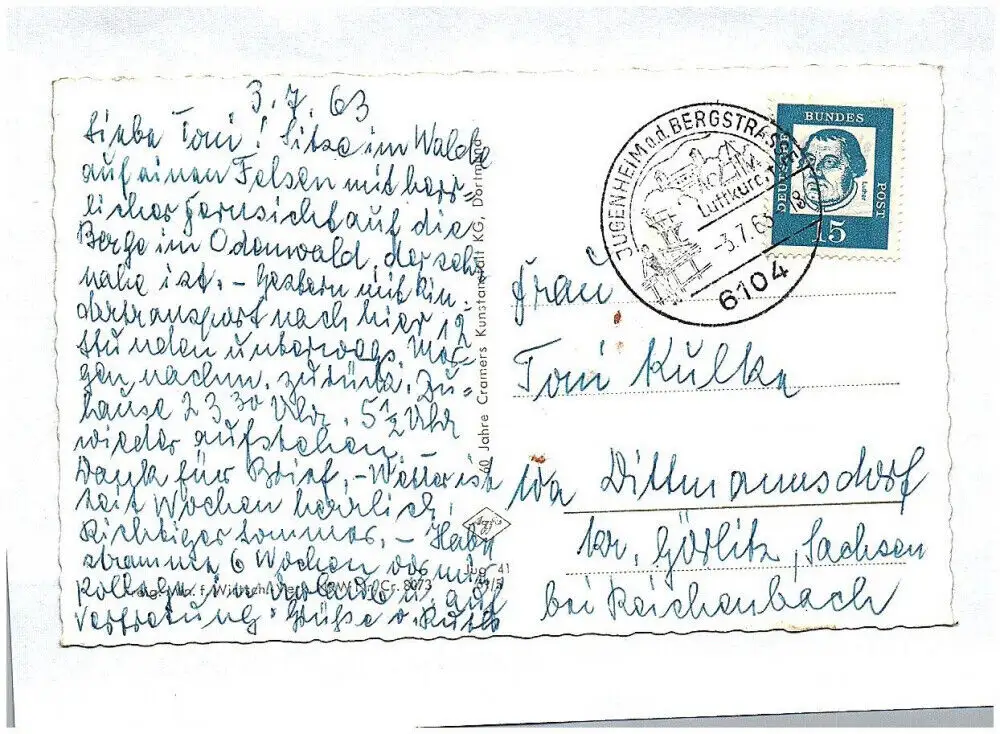 3.7.63
Liebe Toni! Sitze im Walde
auf einen Felsen mit herr-
licher Fernsicht auf die
Berge im Odenwald, der sehr
nahe ist. – Gestern mit Kin-
dertransport nach hier 12
Stunden unterwegs. Mor-
gen, nachm. zurück. Zu-
hause 23 30 Uhr. 5 1/2 Uhr
wieder aufstehen.
Dank für Brief. – Wetter ist
seit Wochen herrlich.
Richtiger Sommer. – Habe
stramme 6 Wochen vor mir
Kollegin
Vertretung. Grüße v. Ruth
60 Jahre Cramers Kunstanstalt KG, Dortmund
Jug. 41
JUGENHEIM a.d. BERGSTRASSE
Luftkurort
-3.7.63. 18
6104
BUNDES
DEUTSCHE
POST
Luther
15
Frau
Toni Kulke
10a Dittmannsdorf
Kr. Görlitz, Sachsen
bei Reichenbach